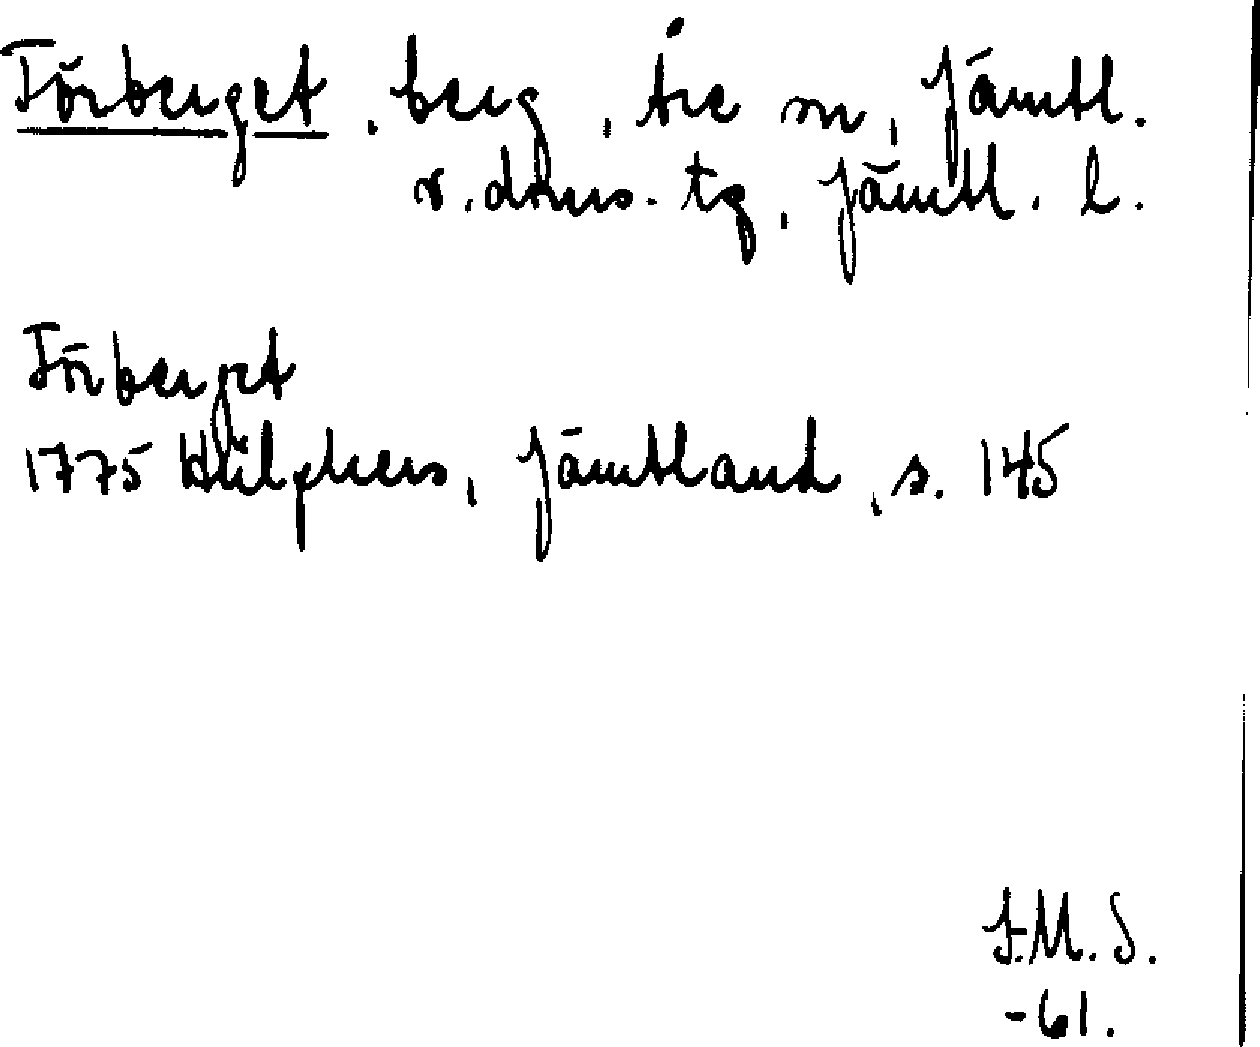 Törberget, berg, Åre sn, Jämtl.
v. doms. tg, Jämtl. l.
Törberget
1775 Hülphers, Jämtland, s. 145
J.M.S.
-61.